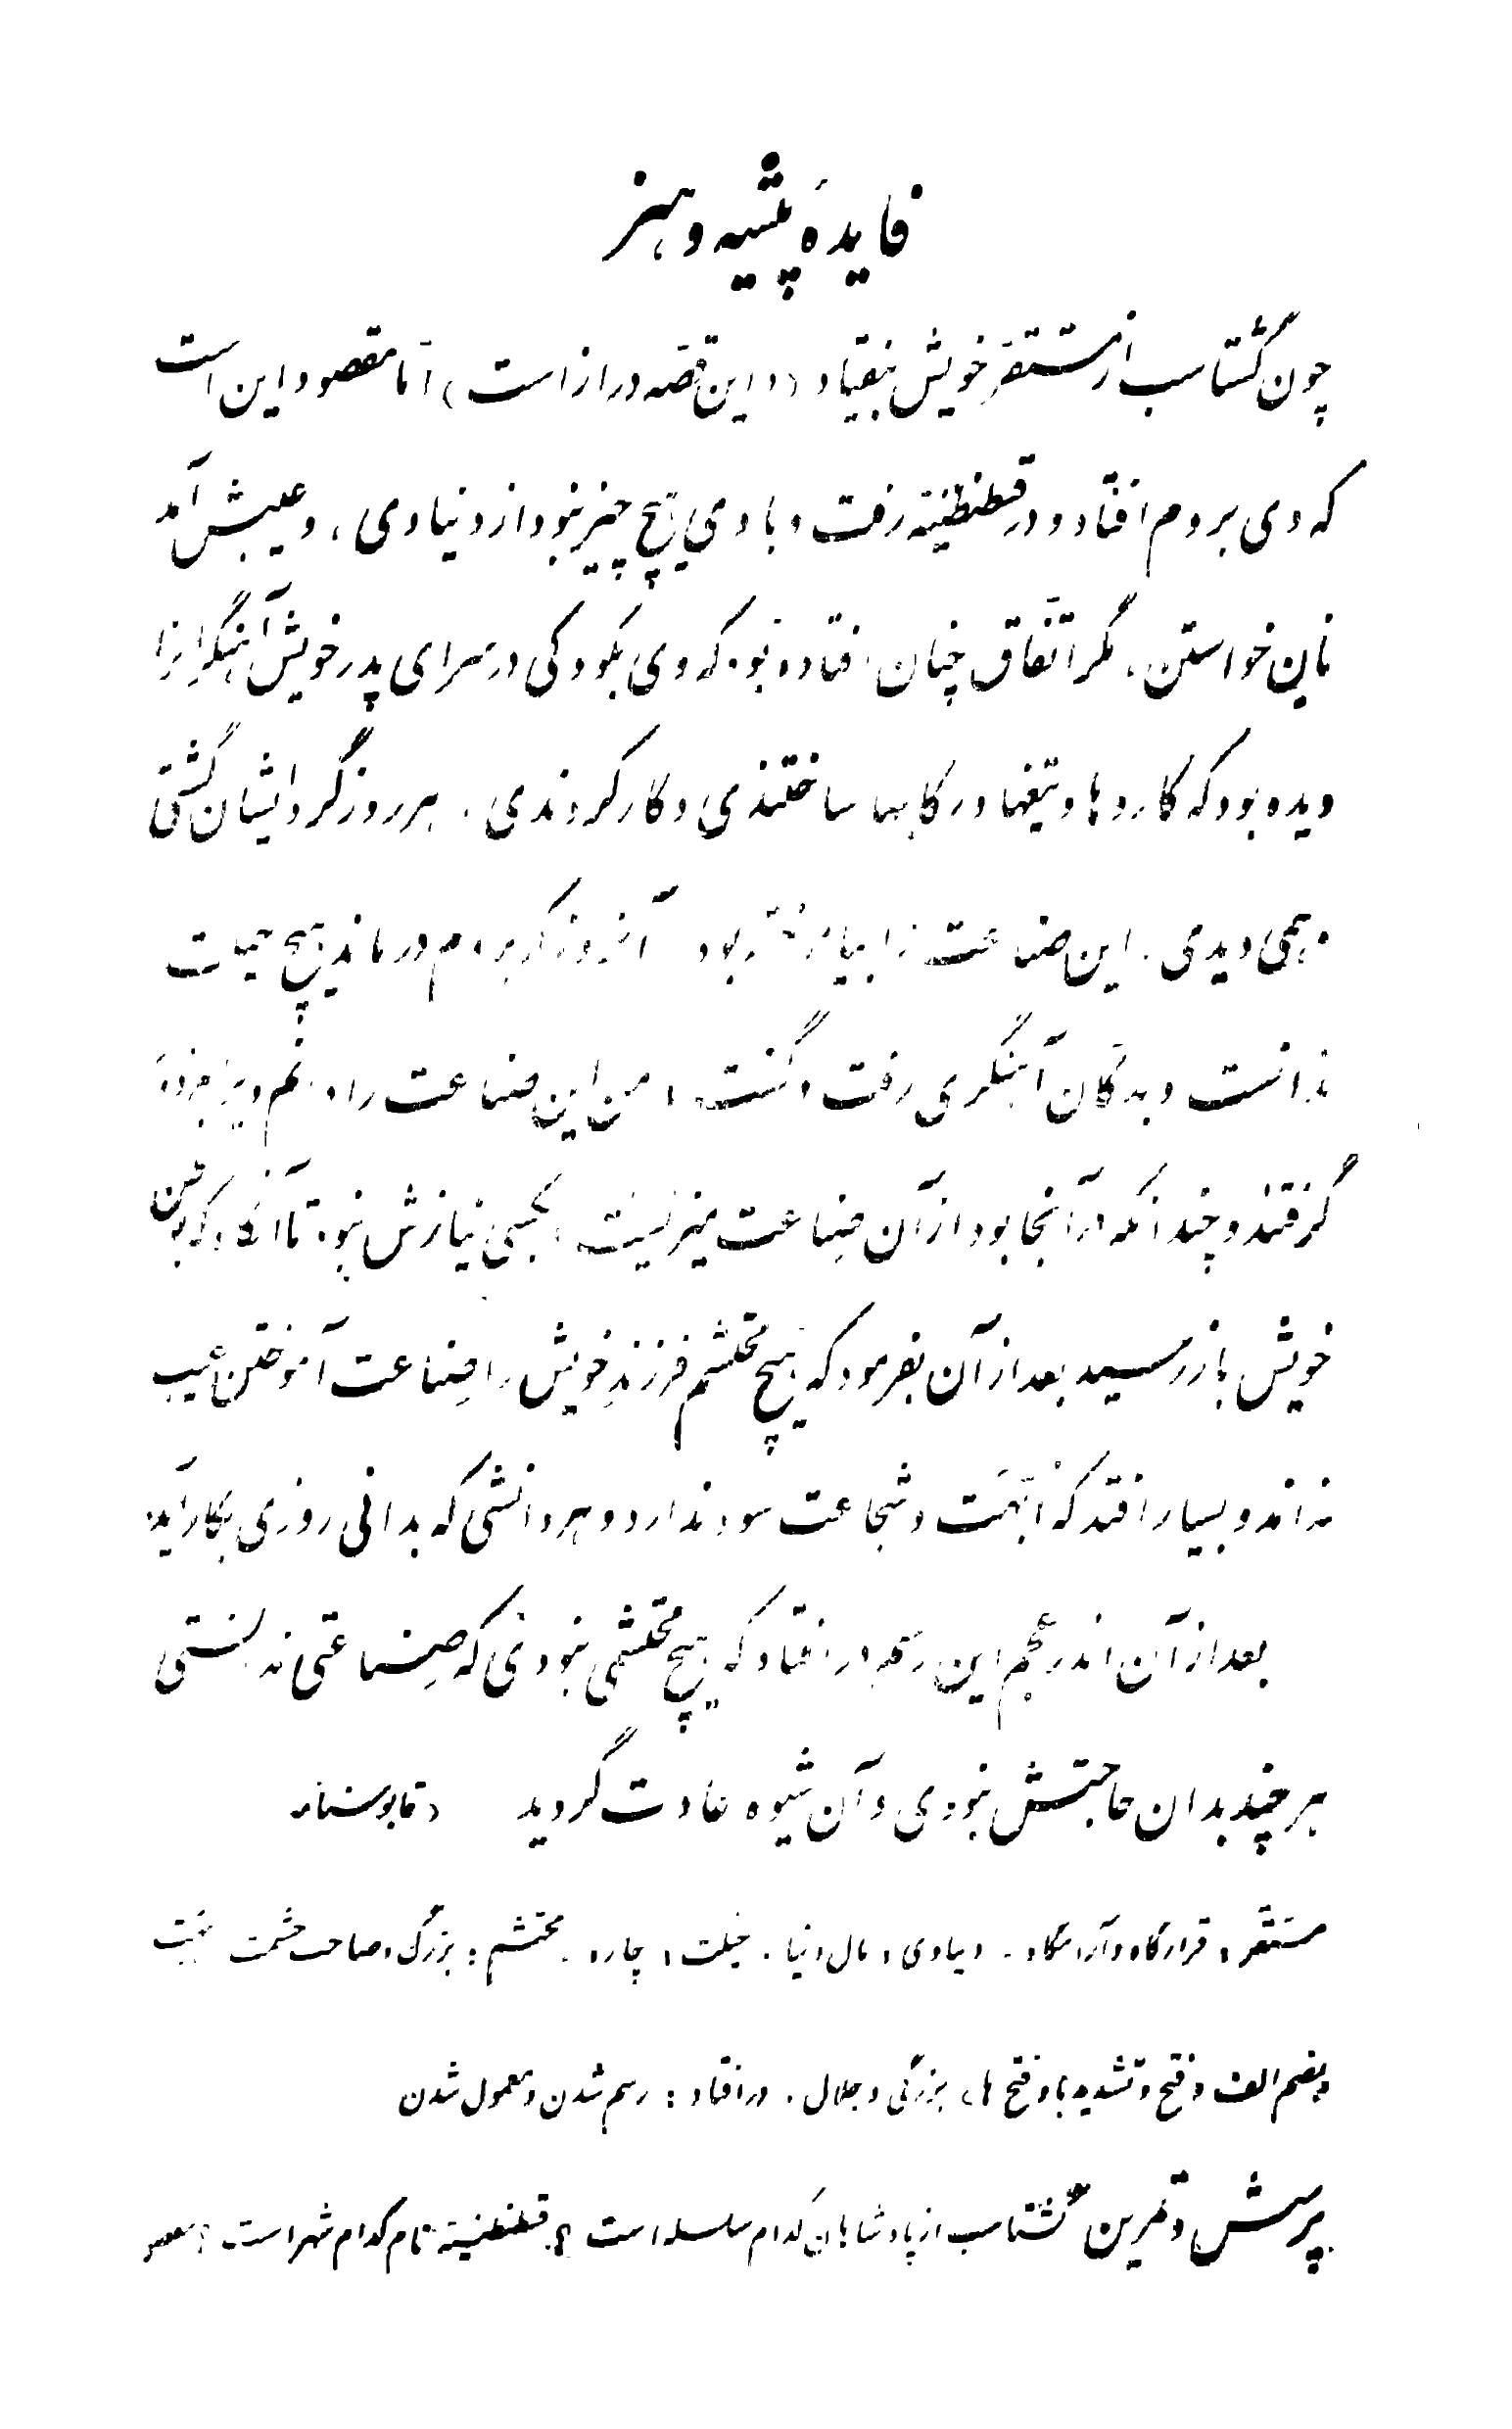 فایدهٔ پیشه و هنر
چون گشتاسب از مستقرِّ خویش بیفتاد (و این قصّه دراز است) امّا مقصود این است
که وی بروم افتاد و در قسطنطنیّه رفت و با وی هیچ چیز نبود از دنیاوی، و عیبش آمد
نان خواستن. مگر اتّفاق چنان افتاده بود که وی بکودکی در سرای پدر خویش آهنگران را
دیده بود که کاردها و تیغها و رکابها ساختندی و کار کردندی. هر روز گرد ایشان گشتی
و همی دیدی. این صناعت را بیاموخته بود آن روز که بروم درماند هیچ حیلت
ندانست و بدکّان آهنگری رفت و گفت: من این صناعت را دانم ویرا بمزدوری
گرفتند و چندانکه در آنجا بود از آن صناعت میزیست و بکسی نیازش نبود تا آنگاه که بوطن
خویش باز رسید بعد از آن بفرمود که هیچ محتشم فرزندِ خویش را صِناعت آموختن عیب
نداند و بسیار افتد که اُبّهَت و شجاعت سود ندارد و هر دانشی که بدانی روزی بکار آید
بعد از آن اندر عجم این رسم در افتاد که هیچ محتشمی نبودی که صِناعتی ندانستی
هر چند بدان حاجتش نبودی و آن شیوه عادت گردید (قابوسنامه
مستقر: قرارگاه و آرامگاه. دنیاوی: مال دنیا. حیلت: چاره. محتشم: بزرگ و صاحب حشمت ابهت
(بضم الف و فتح و تشدید با و فتح ها) بزرگی و جلال. در افتاد: رسم شدن و معمول شدن
پرسش و تمرین گشتاسب از پادشاهان کدام سلسله است؟ قسطنطنیّه نام کدام شهر است؟